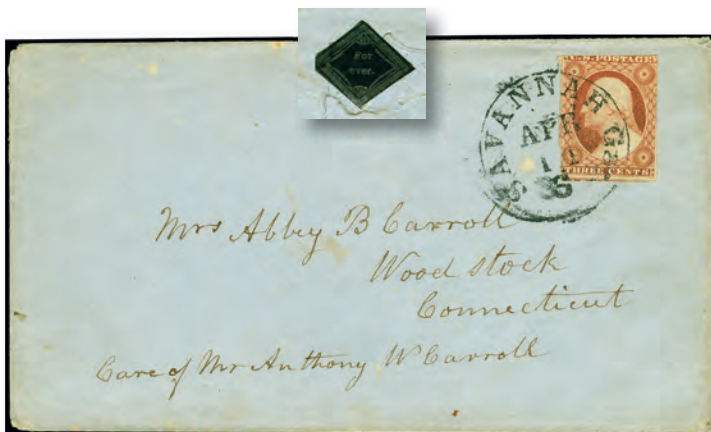 For
ever.
U.S. POSTAGE
THREE CENTS
SAVANNAH Ga
APR
11
Mrs Abbey B Carroll
Woodstock
Connecticut
Care of Mr Anthony W Carroll